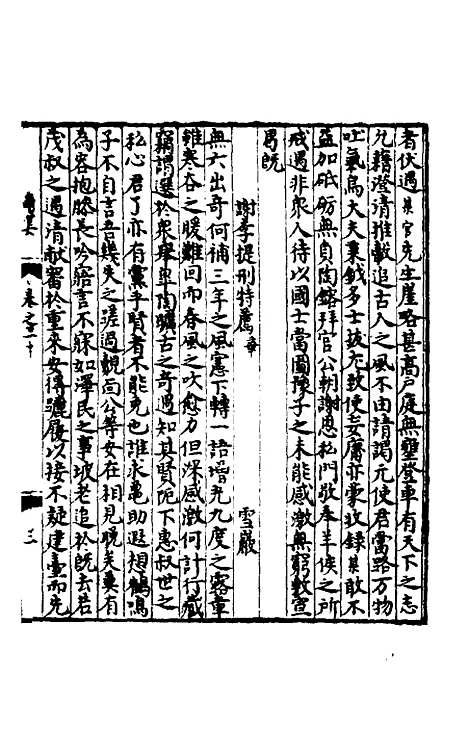 者伏遇某官先生崖略甚高戶庭無壅登車有天下之志
允籍澄清推轂追古人之風不由請謁元使君當路万物
吐氣烏大夫秉鉞多士拔尤致使妄庸亦蒙收錄某敢不
益加砥砺無負陶鎔拜官公朝謝恩私門敬奉羊侯之所
戒遇非衆人待以國士當圖豫子之未能感激無窮敷宣
曷既
謝李提刑特薦章 雪巖
無六出奇何補三年之風憲下轉一語增光九度之露章
雖寒谷之暖難回而春風之吹愈力但深感激何計行藏
竊謂選於衆舉皐陶曠古之奇遇知其賢阨下惠叔世之
私心君子亦有黨乎賢者不能免也誰求龜助遐想鶴鳴
子不自言吾幾失之嗟過覿面公等安在相見晚矣衆有
為客抱膝長吟寤言不寐如澤民之事坡老追於既去若
茂叔之遇清獻審於重來安得躧履以接不疑建臺而充
卷之二十
三